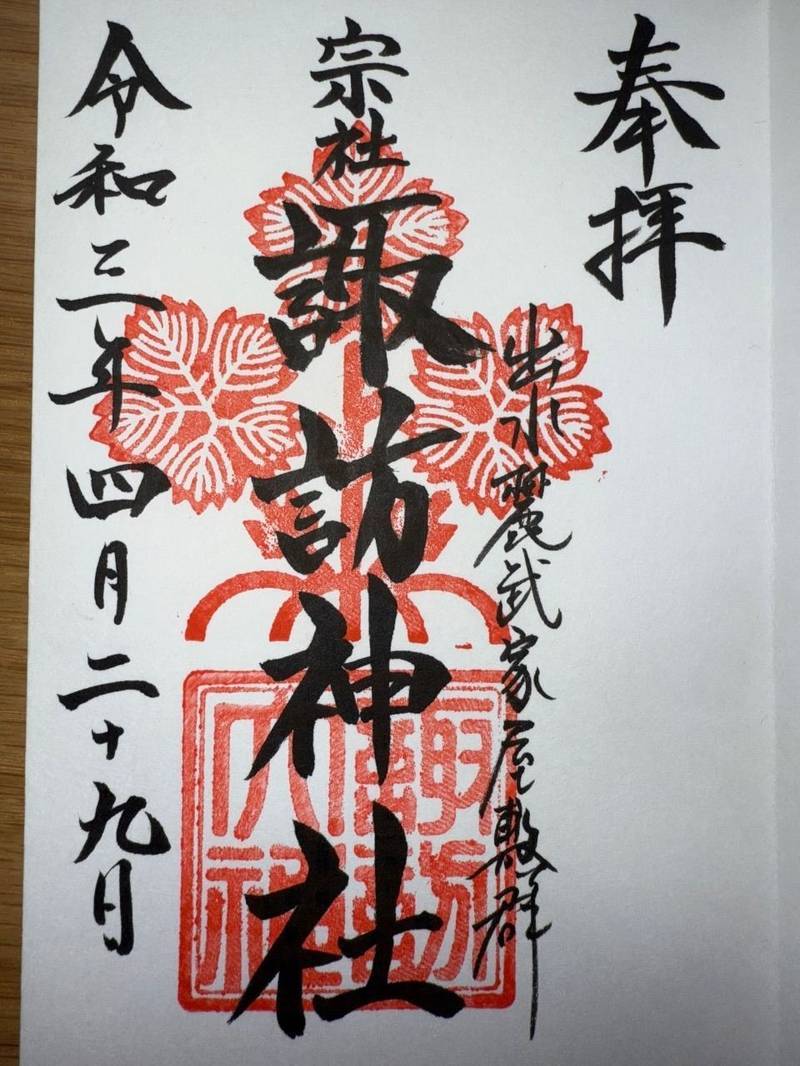 奉拝
出水麓武家屋敷群
宗社
諏訪神社
諏訪大社
令和三年四月二十九日